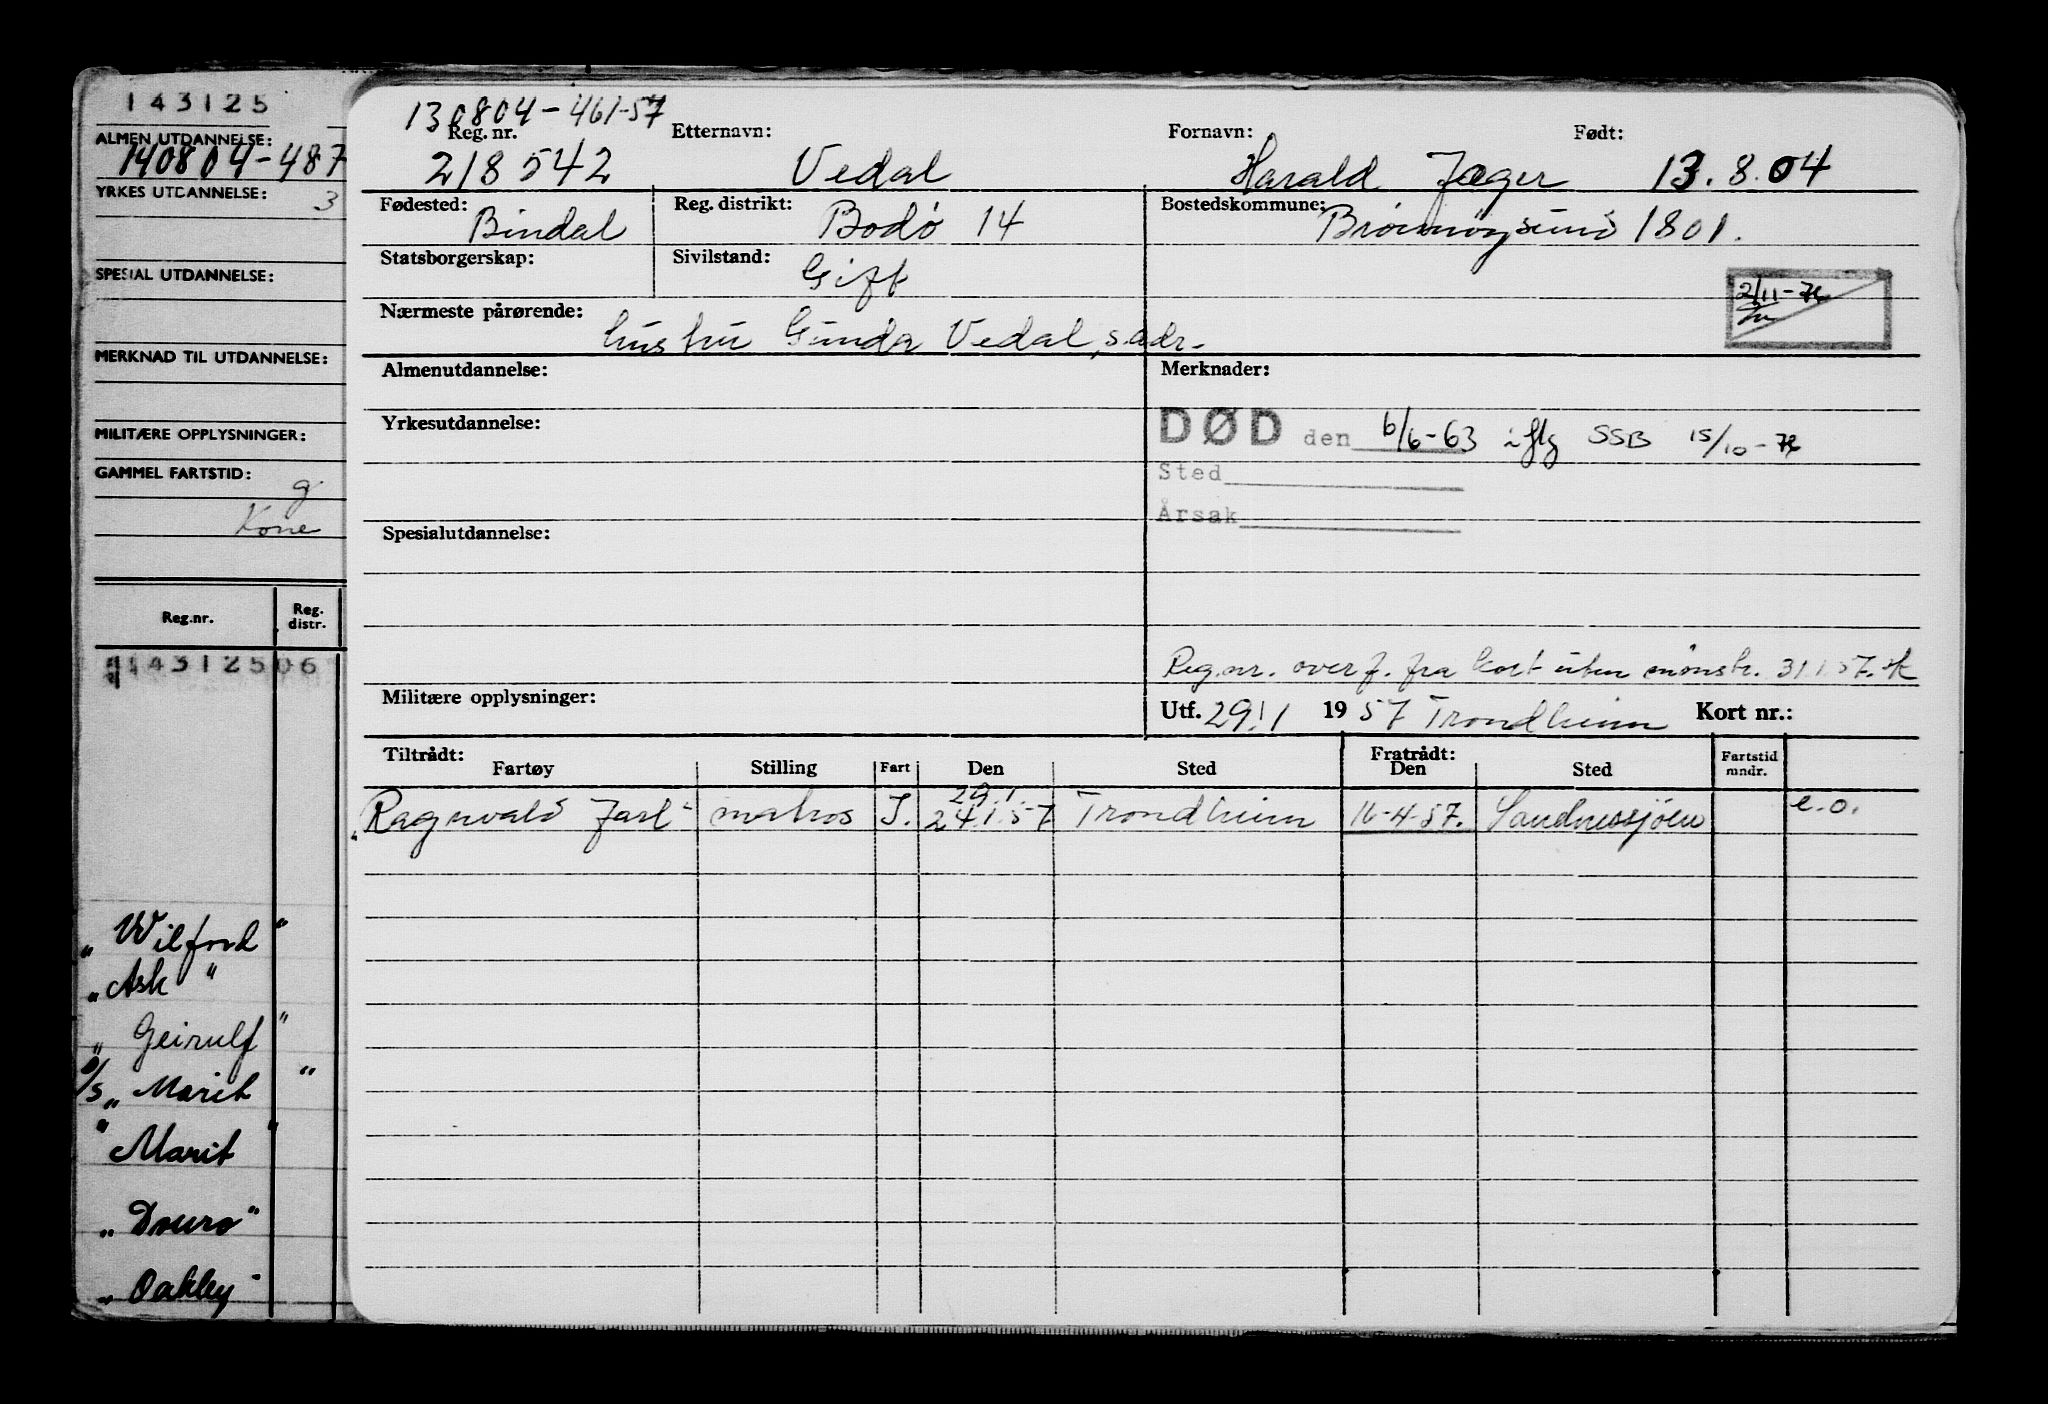 143125
ALMEN UTDANNELSE:
140804-487
YRKES UTDANNELSE: 3
SPESIAL UTDANNELSE:
MERKNAD TIL UTDANNELSE:
MILITÆRE OPPLYSNINGER:
GAMMEL FARTSTID: g
Kone
Reg.nr. Reg. distr.
143125 06
"Wilford"
"Ask"
"Geirulf"
D/S "Marit"
"Marit"
"Douro"
"Oakley"
130804-461-57
Reg. nr. Etternavn: Fornavn: Født:
218542 Vedal Harald Jæger 13.8.04
Fødested: Bindal Reg. distrikt: Bodø 14 Bostedskommune: Brønnøysund 1801.
Statsborgerskap: Sivilstand: Gift
2/11-76
Nærmeste pårørende: hustru Gunda Vedal, s.adr.
Almenutdannelse: Merknader:
Yrkesutdannelse: DØD den 6/6-63 iflg SSB 15/10-76
Sted
Årsak
Spesialutdannelse:
Reg.nr. overf. fra kort uten mønstr. 31.1.57.
Militære opplysninger: Utf. 29/1 19 57 Trondheim Kort nr.:
Tiltrådt: Fratrådt:
Fartøy Stilling Fart Den Sted Den Sted Fartstid mndr.
29.1.
"Ragnvald Jarl" matros I. 24.1.57 Trondheim 16-4-57. Sandnessjøen e.o.